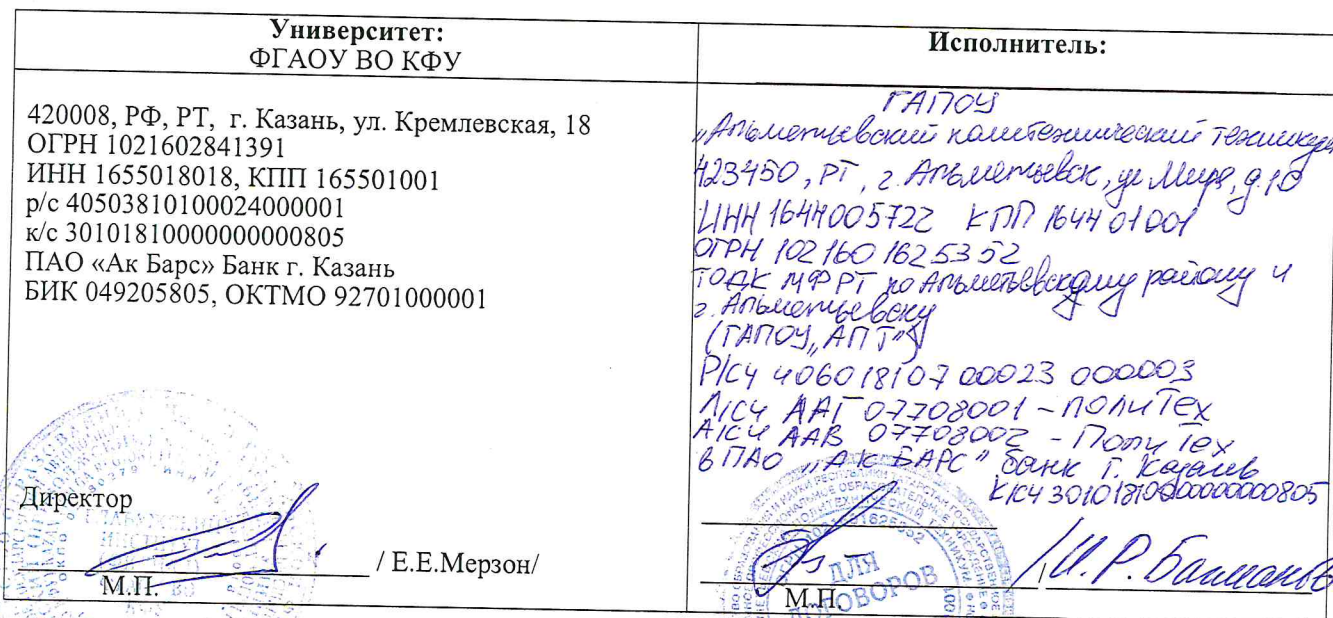 Университет:
ФГАОУ ВО КФУ
420008, РФ, РТ, г. Казань, ул. Кремлевская, 18
ОГРН 1021602841391
ИНН 1655018018, КПП 165501001
р/с 40503810100024000001
к/с 30101810000000000805
ПАО «Ак Барс» Банк г. Казань
БИК 049205805, ОКТМО 92701000001
Директор
/ Е.Е.Мерзон/
М.П.
Исполнитель:
ГАПОУ
„Альметьевский политехнический техникум
423450, РТ, г. Альметьевск, ул Мира, д.10
ИНН 1644005722 КПП 164401001
ОГРН 1021601625352
ТОДК МФ РТ по Альметьевскому району и
г. Альметьевску
(ГАПОУ „АПТ")
Р/СЧ 40601810700023000003
Л/СЧ ААГ 07708001 - ПОЛИТех
Л/СЧ ААВ 07708002 - ПолиТех
в ПАО „АК БАРС" банк г. Казань
К/СЧ 30101810000000000805
/ И.Р.
М.П.
ДЛЯ
ДОГОВОРОВ